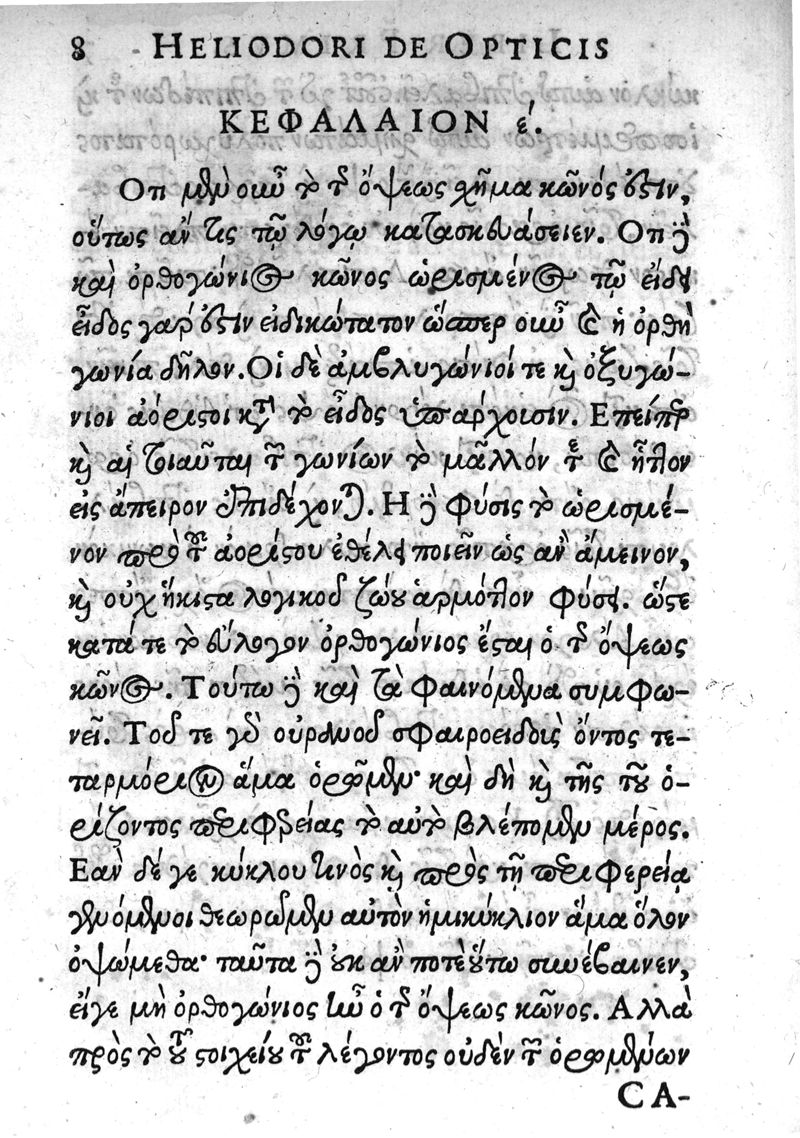 8 HELIODORI DE OPTICIS
ΚΕΦΑΛΑΙΟΝ ε΄.
Οτι μὲν οὖν τὸ τῆς ὄψεως σχῆμα κῶνός ἐστιν,
οὕτως ἄν τις τῷ λόγῳ κατασκευάσειεν. Οτι δὲ
καὶ ὀρθογώνιος κῶνος ὡρισμένος τῷ εἴδει
εἶδος γάρ ἐστιν εἰδικώτατον ὥσπερ οὖν καὶ ἡ ὀρθὴ
γωνία δῆλον. Οἱ δὲ ἀμβλυγώνιοί τε καὶ ὀξυγώ-
νιοι ἀόριστοι κατὰ τὸ εἶδος ὑπάρχοισιν. Επείπερ
καὶ αἱ τοιαῦται τῶν γωνίων τὸ μᾶλλόν τε καὶ ἧττον
εἰς ἄπειρον ἐπιδέχονται. Η δὲ φύσις τὸ ὡρισμέ-
νον πρὸ τοῦ ἀορίστου ἐθέλει ποιεῖν ὡς ἂν ἄμεινον,
καὶ οὐχ ἥκιστα λογικοῦ ζώου ἁρμόττον φύσει. ὥστε
κατά τε τὸ εὔλογον ὀρθογώνιος ἔσται ὁ τῆς ὄψεως
κῶνος. Τούτῳ δὲ καὶ τὰ φαινόμενα συμφω-
νεῖ. Τοῦ τε γὰρ οὐρανοῦ σφαιροειδοῦς ὄντος τε-
ταρμόριον ἅμα ὁρῶμεν· καὶ δὴ καὶ τῆς τοῦ ὁ-
ρίζοντος περιφερείας τὸ αὐτὸ βλέπομεν μέρος.
Εὰν δέ γε κύκλου τινὸς καὶ πρὸς τῇ περιφερείᾳ
γενόμενοι θεωροῦμεν αὐτὸν ἡμικύκλιον ἅμα ὅλον
ὀψώμεθα· ταῦτα δὲ οὐκ ἄν ποτε οὕτω συνέβαινεν,
εἴγε μὴ ὀρθογώνιος ἦν ὁ τῆς ὄψεως κῶνος. Αλλὰ
πρὸς τὸ τοῦ στοιχείου τοῦ λέγοντος οὐδὲν τῶν ὁρωμένων
CA-